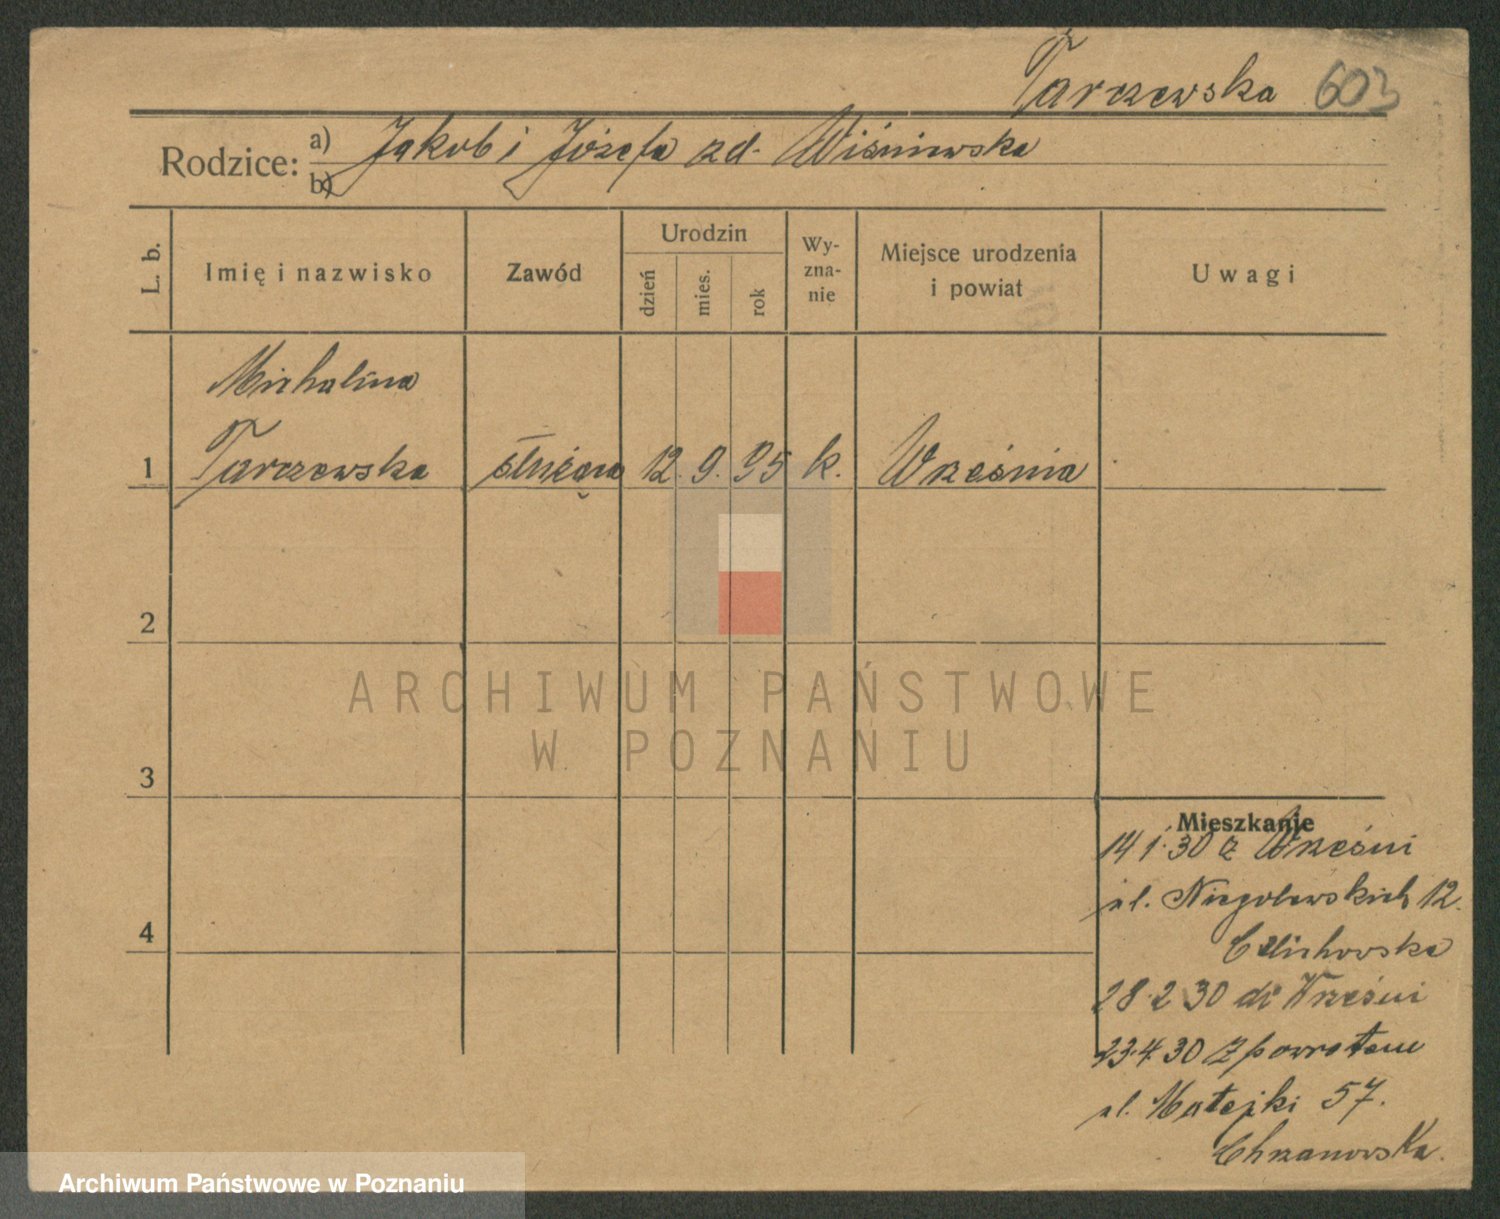 Tarczewska 603
Rodzice: a) Jakob i Józefa zd. Wiśniewska
b)
L. b. Imię i nazwisko Zawód Urodzin dzień mies. rok Wy-zna-nie Miejsce urodzenia i powiat Uwagi
Michalina
1 Tarczewska służąca 12. 9. 95 k. Września
2
ARCHIWUM PAŃSTWOWE
W POZNANIU
3
Mieszkanie
14 1. 30 z Wrześni
ul. Niegolewskich 12.
4
28. 2 30 do Wrześni
23. 4. 30 z powrotem
ul. Matejki 57.
Chrzanowska.
Archiwum Państwowe w Poznaniu